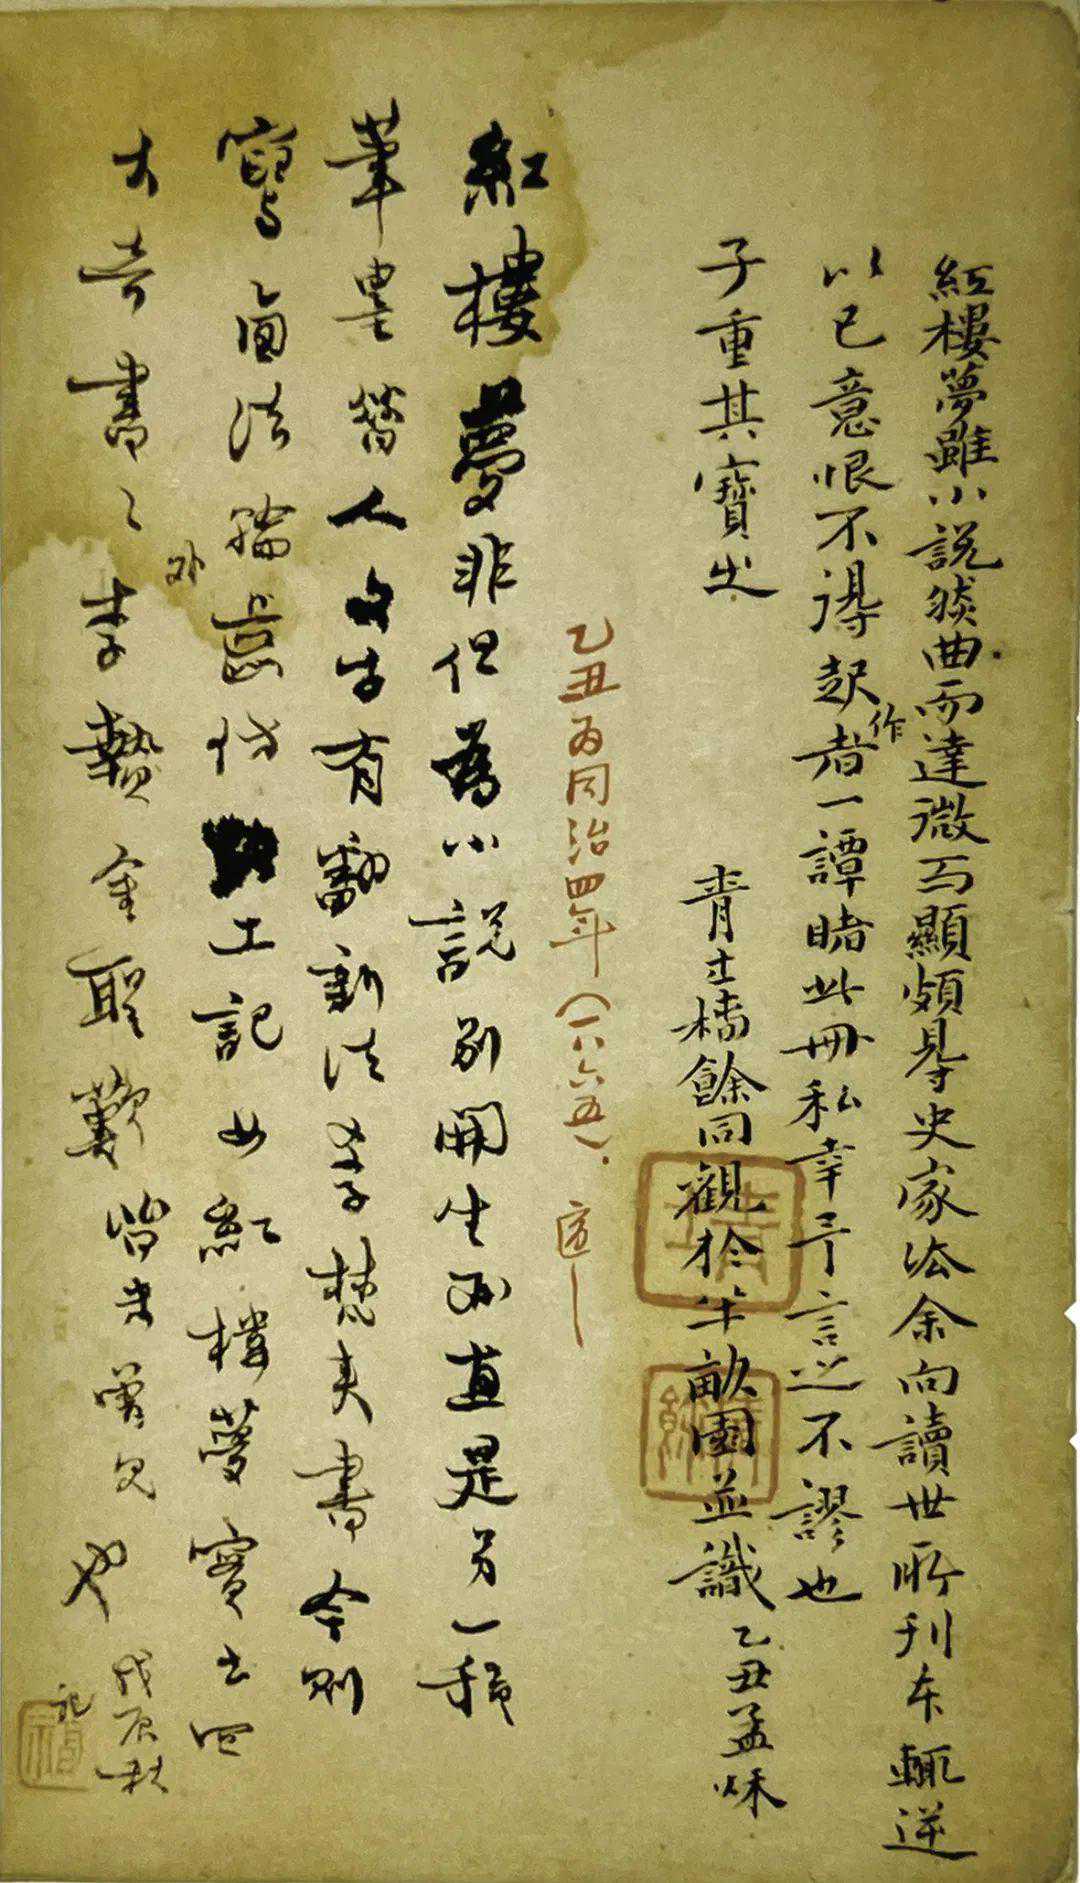 紅樓夢雖小說然曲而達微而顯頗得史家法余向讀世所刊本輒逆
以己意恨不得起作者一譚睹此冊私幸予言之不謬也
子重其寶之
青士椿餘同觀於半畝園並識乙丑孟秋
乙丑為同治四年（一八六五）
紅樓夢非但為小說別開生面直是另一種
筆墨昔人文字有翻新法學梵夾書今則
寫西法輪齒仿工記如紅樓夢實出四
大奇書之外李贄金聖歎皆未曾見也
戊辰秋記
青士
椿餘